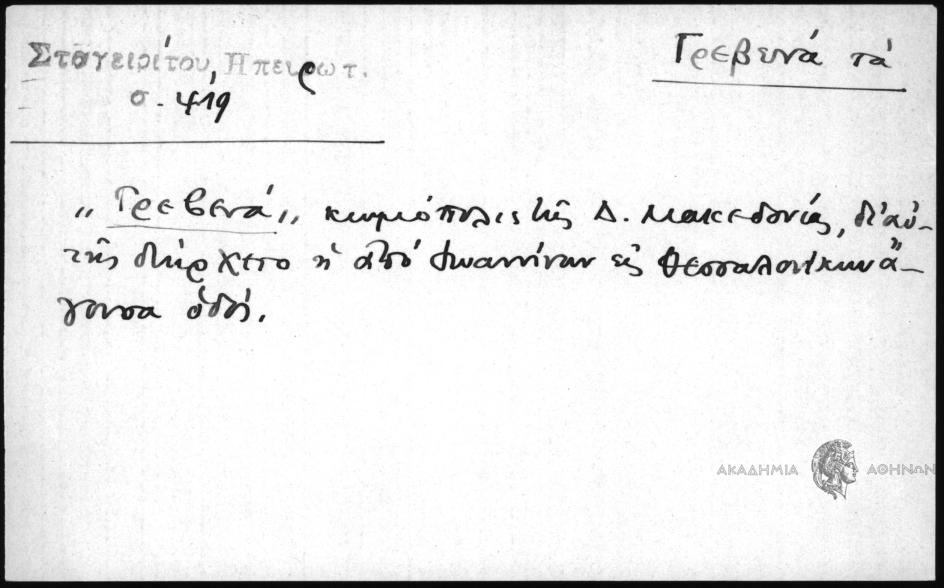 Σταγειρίτου, Ηπειρωτ.
σ. 419
Γρεβενά τά
„Γρεβενά„ κωμόπολις τῆς Δ. Μακεδονίας, δι' αὐ-
τῆς διήρχετο ἡ ἀπό Ἰωαννίνων εἰς Θεσσαλονίκην ἄ-
γουσα ὁδός.
ΑΚΑΔΗΜΙΑ ΑΘΗΝΩΝ